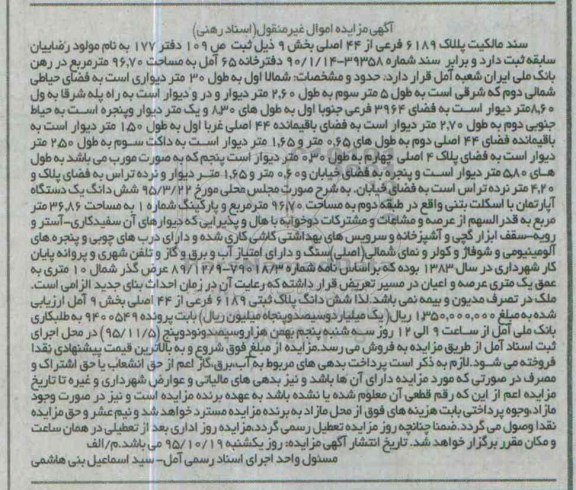 آگهی مزایده اموال غیرمنقول(اسناد رهنی)
سند مالکیت پلاک ۶۱۸۹ فرعی از ۴۴ اصلی بخش ۹ ذیل ثبت ص ۱۰۹ دفتر ۱۷۷ به نام مولود رضاییان
سابقه ثبت دارد و برابر سند شماره ۳۹۳۵۸-۹۰/۱/۱۴ دفترخانه ۶۵ آمل به مساحت ۹۶,۷۰ مترمربع در رهن
بانک ملی ایران شعبه آمل قرار دارد: حدود و مشخصات: شمالا اول به طول ۳۰ متر دیواری است به فضای حیاطی
شمالی دوم که شرقی است به طول ۵ متر سوم به طول ۲,۶۰ متر دیوار و در و دیوار است به راه پله شرقا به ول
۸,۶۰متر دیوار است به فضای ۳۹۶۴ فرعی جنوبا اول به طول های ۸,۳۰ و یک متر دیوار وپنجره است به حیاط
جنوبی دوم به طول ۲,۷۰ متر دیوار است به فضای باقیمانده ۴۴ اصلی غربا اول به طول ۱۵۰ متر دیوار است به
باقیمانده فضای ۴۴ اصلی دوم به طول های ۰,۶۵ متر و ۱,۶۵ متر دیوار است به داکت سوم به طول ۲۵۰ متر
دیوار است به فضای پلاک ۴ اصلی چهارم به طول ۰,۳۰ متر دیوار است پنجم که به صورت مورب می باشد به طول
های ۵,۸۰ متر دیوار است و پنجره به فضای خیابان و ۰,۶۰ متر و ۱,۶۵ متر دیوار و نرده تراس به فضای پلاک و
۴,۲۰ متر نرده تراس است به فضای خیابان. به شرح صورت مجلس محلی مورخ ۹۵/۳/۲۲ شش دانگ یک دستگاه
آپارتمان با اسکلت بتنی واقع در طبقه دوم به مساحت ۹۶,۷۰ مترمربع و پارکینگ شماره ۱ به مساحت ۳۶,۸۶ متر
مربع به قدر السهم از عرصه و مشاعات و مشترکات دوخوابه با هال و پذیرایی که دیوارهای آن سفیدکاری-آستر و
رویه-سقف ابزار گچی و آشپزخانه و سرویس های بهداشتی کاشی کاری شده و دارای درب های چوبی و پنجره های
آلومینیومی و شوفاژ و کولر و نمای شمالی(اصلی)سنگ و دارای امتیاز آب و برق و گاز و تلفن شهری و پروانه پایان
کار شهرداری در سال ۱۳۸۳ بوده که بر اساس نامه شماره ۷۹۰۱۸/۳-۸۹/۱۲/۹ عرض گذر شمال ۱۰ متری به
عمق یک متری عرصه و اعیان در مسیر تعریض قرار داشته که رعایت آن در زمان احداث بنای جدید الزامی است.
ملک در تصرف مدیون و بیمه نمی باشد.لذا شش دانگ پلاک ثبتی ۶۱۸۹ فرعی از ۴۴ اصلی بخش ۹ آمل ارزیابی
شده به مبلغ ۱,۳۵۰,۰۰۰,۰۰۰ ریال(یک میلیارد وسیصد و پنجاه میلیون ریال) بابت پرونده ۹۴۰۰۵۴۹ به طلبکاری
بانک ملی آمل از ساعت ۹ الی ۱۲ روز سه شنبه پنجم بهمن هزار وسیصد و نود و پنج (۹۵/۱۱/۵) در محل اجرای
ثبت اسناد آمل از طریق مزایده به فروش می رسد.مزایده از مبلغ فوق شروع و به بالاترین قیمت پیشنهادی نقدا
فروخته می شود.لازم به ذکر است پرداخت بدهی های مربوط به آب،برق،گاز اعم از حق انشعاب یا حق اشتراک و
مصرف در صورتی که مورد مزایده دارای آن ها باشد و نیز بدهی های مالیاتی و عوارض شهرداری و غیره تا تاریخ
مزایده اعم از این که رقم قطعی آن معلوم شده یا نشده باشد به عهده برنده مزایده است و نیز در صورت وجود
مازاد،وجوه پرداختی بابت هزینه های فوق از محل مازاد به برنده مزایده مسترد خواهد شد و نیم عشر و حق مزایده
نقدا وصول می گردد.ضمنا چنانچه روز مزایده تعطیل رسمی گردد،مزایده روز اداری بعد از تعطیلی در همان ساعت
و مکان مقرر برگزار خواهد شد. تاریخ انتشار آگهی مزایده: روز یکشنبه ۹۵/۱۰/۱۹ می باشد.م/الف
مسئول واحد اجرای اسناد رسمی آمل-سید اسماعیل بنی هاشمی